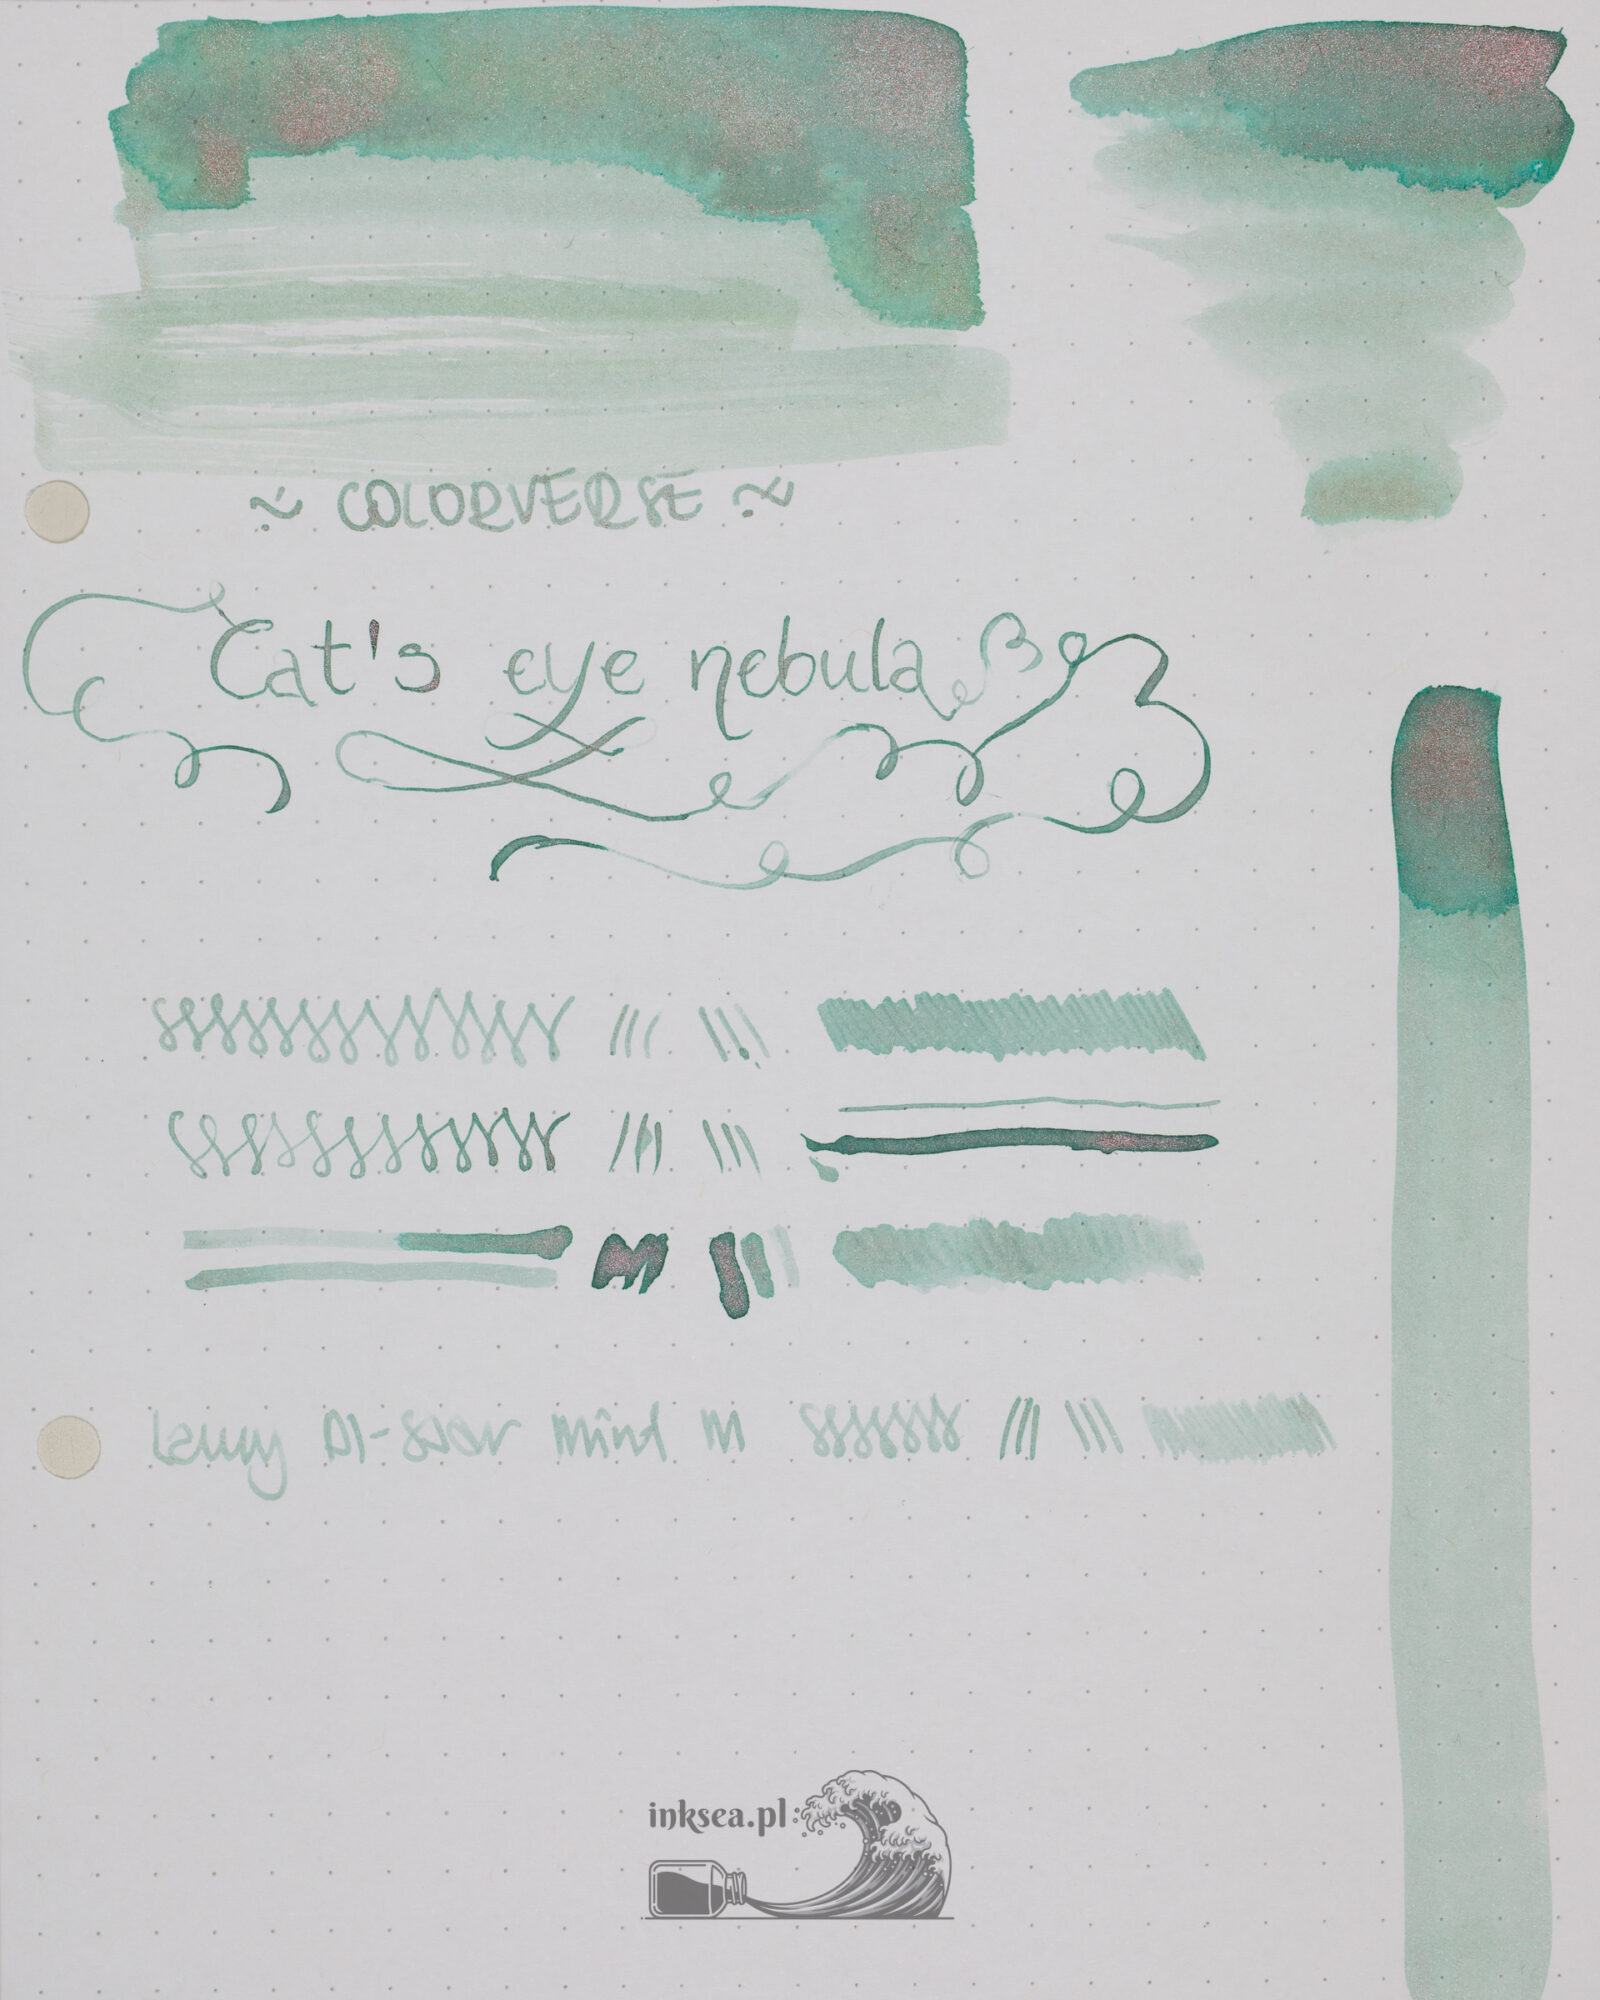 ~ COLORVERSE ~
Cat's eye nebula
Lamy Al-Star mint M
inksea.pl